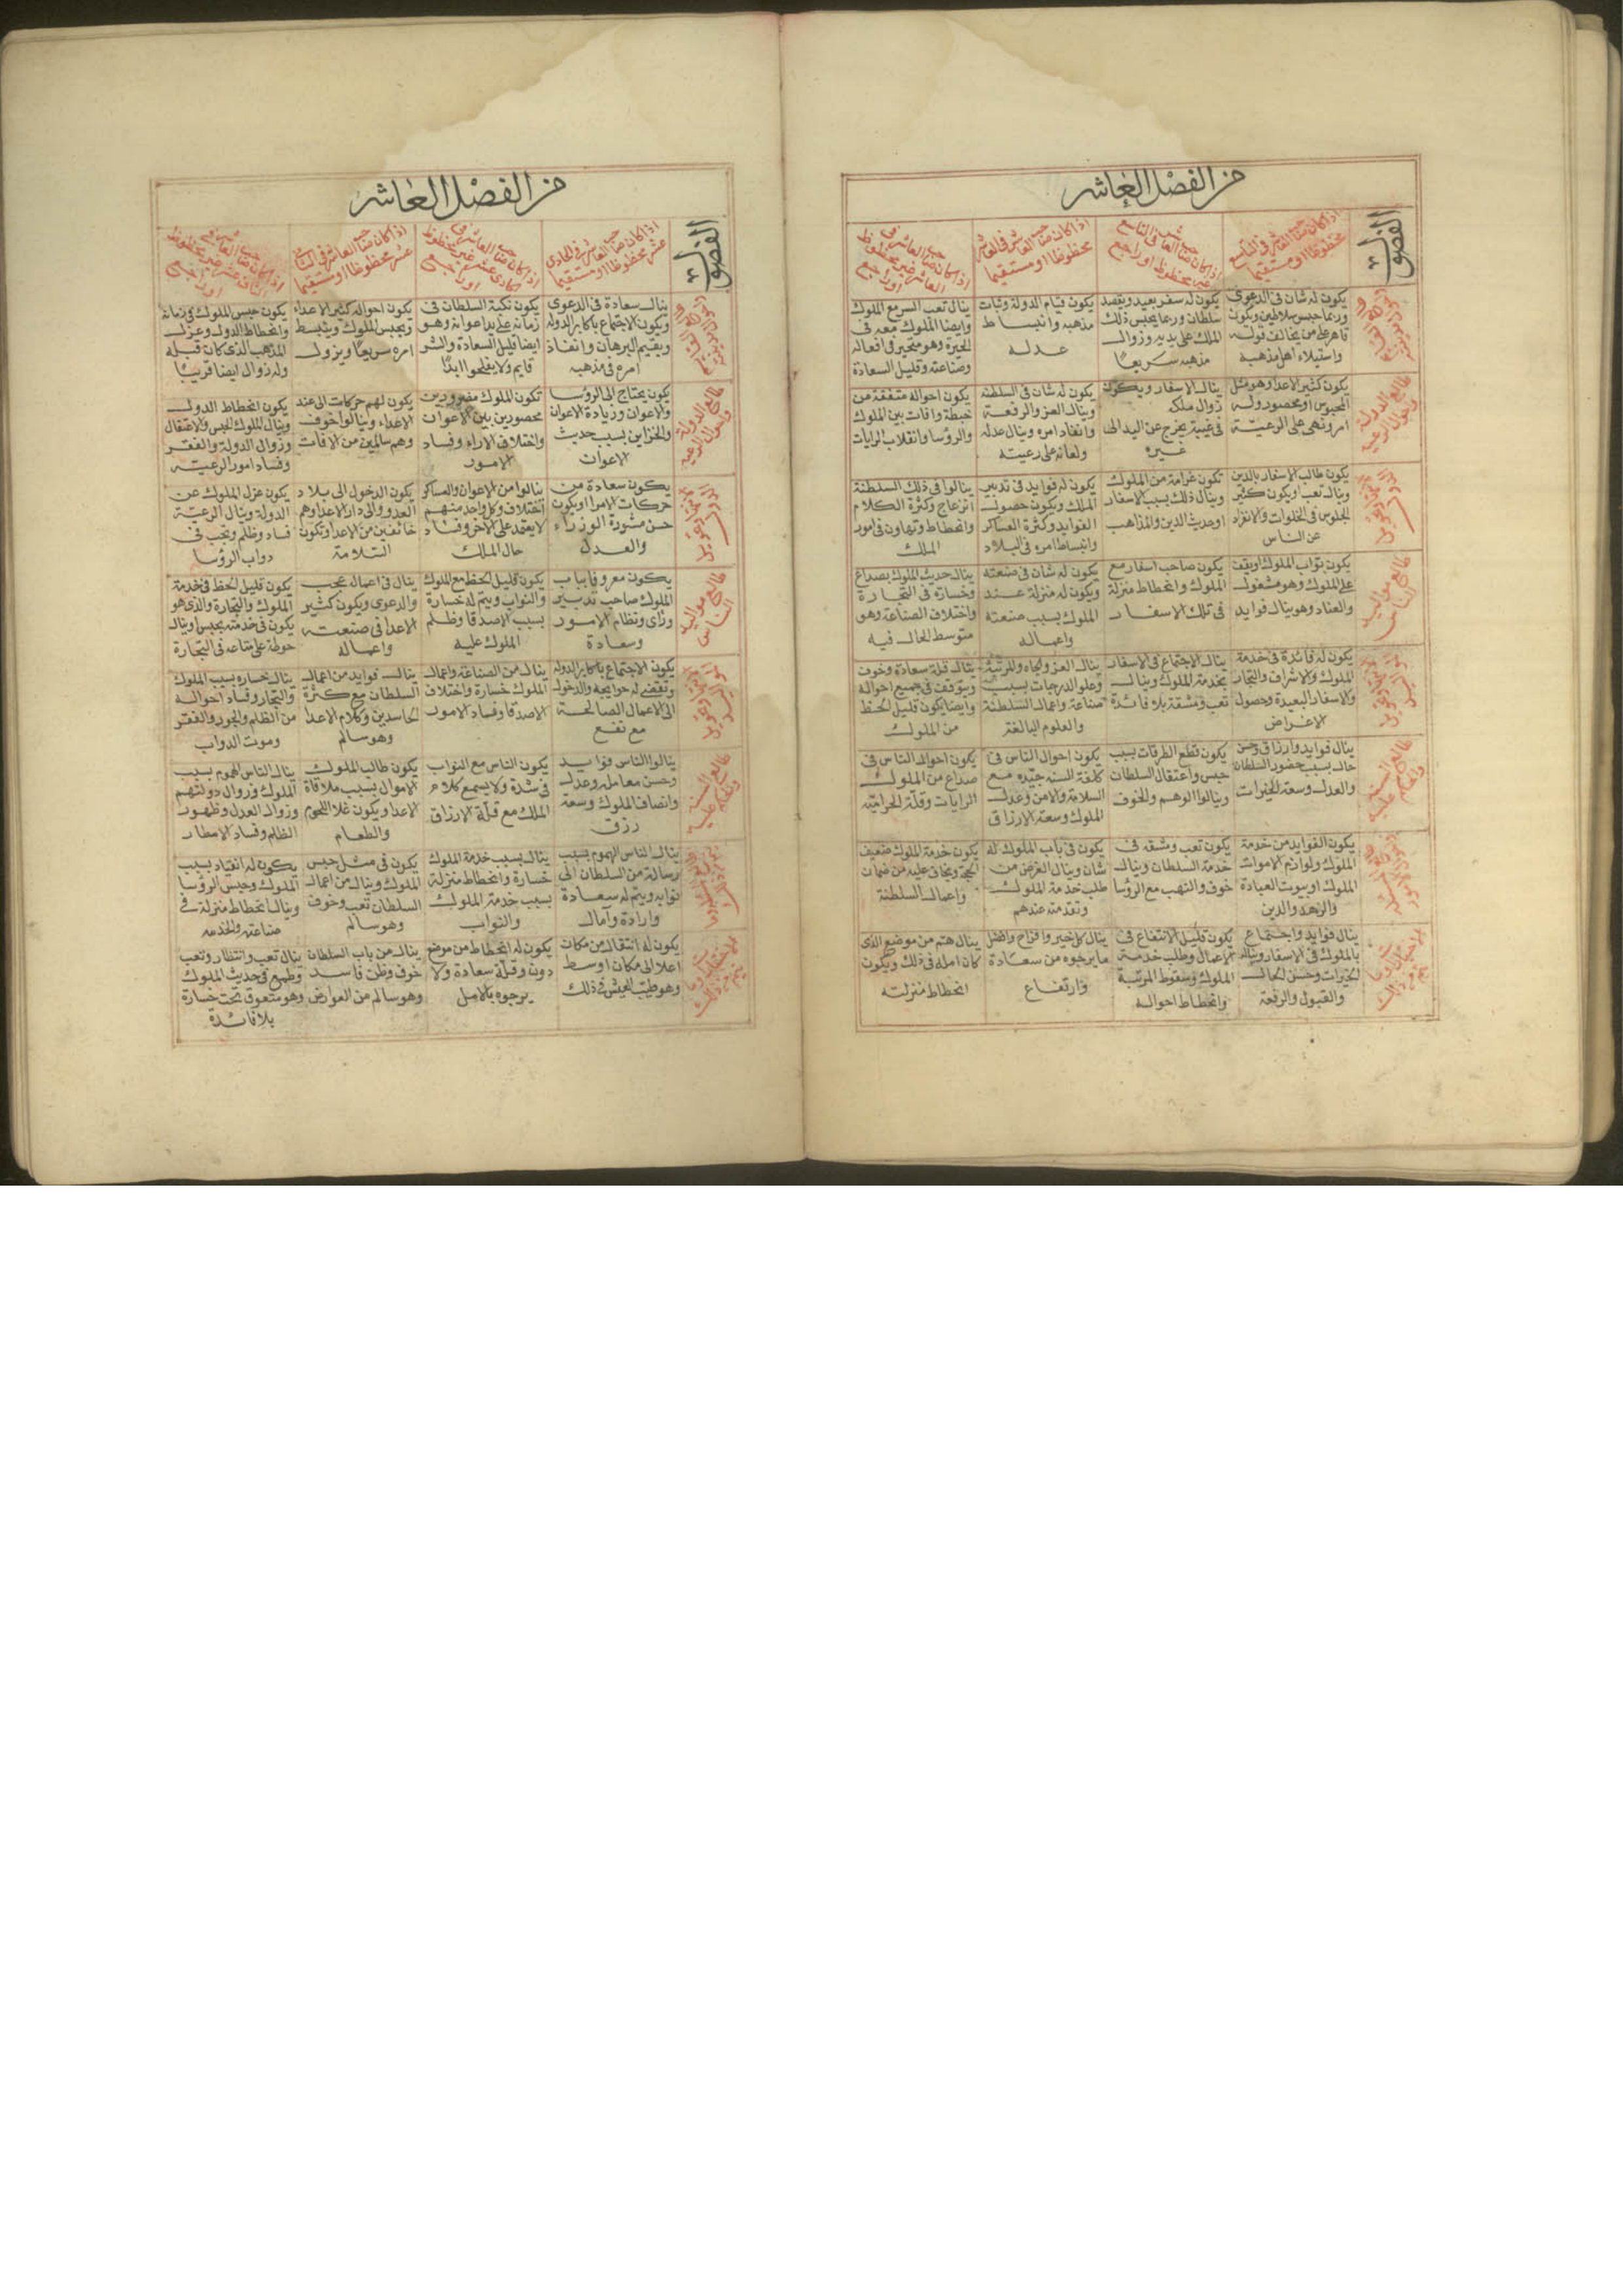 من الفصل العاشر
الفصول
اذا كان صاحب العاشر في التاسع
محظوظا او مستقيما
اذا كان صاحب العاشر في التاسع
غير محظوظ او راجع
اذا كان صاحب العاشر في العاشر
محظوظا او مستقيما
اذا كان صاحب العاشر في
العاشر غير محظوظ
او راجع
يكون له شان في الدعوى
وربما حبس سلاطين ويكون
قاهر على من يخالف قوله
واستيلاء اهل مذهبه
يكون له سفر بعيد ويقصد
سلطان وربما يحبس ذلك
الملك على يديه وزوال
مذهبه سريعا
يكون قيام الدولة وثبات
مذهبه وانبساط
عدله
ينال تعب السر مع الملوك
وايضا الملوك معه في
الحيرة وهو متحير في افعاله
وصناعته وقليل السعادة
طالع الدولة
واحوال الرعية
يكون كثير الاعدا وهو مثل
المحبوس او محصور وله
امر ونهى على الرعية
ينال الاسفار ويكون
زوال ملكه
في غيبة يخرج عن اليد الى
غيره
يكون له شان في السلطنة
وينال العز والرفعة
وانفاد امره وينال عدله
ولغاته على رعيته
يكون احواله متفقة من
خبطة وافات بين الملوك
والرؤسا وانقلاب الرايات
يكون طالب الاسفار بالدين
وينال تعب ويكون كثير
الجلوس في الخلوات والانفراد
عن الناس
تكون غرامة من الملوك
وينال ذلك بسبب الاسفار
وحديث الدين والمذاهب
يكون له فوايد في تدبير
الملك ويكون حصول
الفوايد وكثرة العساكر
وانبساط امره في البلاد
ينالوا في ذلك السلطنة
انزعاج وكثرة الكلام
وانحطاط وتهاون في امور
الملك
طالع مواليد
الناس
يكون نواب الملوك
على الملوك وهو مشغول
والعناد وهو ينال فوايد
يكون صاحب اسفار مع
الملوك وانحطاط منزلة
في تلك الاسفار
يكون له شان في صنعته
ويكون له منزلة عند
الملوك بسبب صنعته
واعماله
ينال حديث الملوك بصداع
وخسارة في التجارة
واختلاف الصناعة وهو
متوسط الحال فيه
يكون له فائدة في خدمة
الملوك والاشراف والتجار
والاسفار البعيدة وحصول
الاغراض
ينال الاجتماع في الاسفار
بخدمة الملوك وينال
تعب ومشقة بلا فائدة
ينال العز والجاه والمرتبة
وعلو الدرجات بسبب
صناعة واعمال السلطنة
والعلوم البالغة
ينال قلة سعادة وخوف
ويتوقف في جميع احواله
وايضا يكون قليل الحظ
من الملوك
طالع السنة
ينال فوايد وارزاق وحسن
حال بسبب حضور السلطان
والعدل وسعة الخيرات
يكون قطع الطرقات بسبب
حبس واعتقال السلطان
وينالوا الوهم والخوف
يكون احوال الناس في
كلفة السنه جيده مع
السلامة والامن وعدل
الملوك وسعة الارزاق
يكون احوال الناس في
صداع من الملوك
الرايات وقلة الحرامية
يكون الفوايد من خدمة
الملوك ولوازم الاموات
الملوك او بيوت العبادة
والزهد والدين
يكون تعب ومشقه في
خدمة السلطان وينال
خوف والتهب مع الرؤسا
يكون في باب الملوك له
شان وينال الغرض من
طلب خدمة الملوك
وتقدمته عندهم
يكون خدمة الملوك ضعيف
الحجة ويخاف عليه من ضمان
واعمال السلطنة
ينال فوايد واجتماع
بالملوك في الاسفار وينال
الخيرات وحسن الحال
والقبول والرفعة
يكون قليل الانتفاع في
الاعمال وطلب خدمة
الملوك وسقوط المرتبة
وانحطاط احواله
ينال كل خير وافراح وافضل
ما يرجوه من سعادة
وارتفاع
ينال هم من موضع الذي
كان امله في ذلك ويكون
انحطاط منزلته
من الفصل العاشر
الفصول
اذا كان صاحب العاشر في الحادي
عشر محظوظا او مستقيما
اذا كان صاحب العاشر في
حادي عشر غير محظوظ
او راجع
اذا كان صاحب العاشر في الثاني
عشر محظوظا او مستقيما
اذا كان صاحب العاشر في
الثاني عشر غير محظوظ
او راجع
ينال سعادة في الدعوى
ويكون الاجتماع باكابر الدوله
ويقيم البرهان وانفاذ
امره في مذهبه
يكون نكبة السلطان في
زمانه على يد اعوانه وهو
ايضا قليل السعادة والشر
قايم ولا يفلحوا ابدا
يكون احواله كثير الاعداء
ويحبس الملوك ويثبط
امره سريعا ويزول
يكون حبس الملوك في زمانه
وانحطاط الدول وعزل
المذهب الذي كان قبله
وله زوال ايضا قريبا
طالع الدولة
واحوال الرعية
يكون يحتاج الى الرؤسا
والاعوان وزيادة الاعوان
والخزاين بسبب حديث
الاعوان
تكون الملوك مقهورين
محصورين بين الاعوان
واختلاف الاراء وفساد
الامور
يكون لهم حركات الى عند
الاعداء وينالوا خوف
وهم سالمين من الافات
يكون انحطاط الدول
وينال الملوك الحبس والاعتقال
وزوال الدولة والفقر
وفساد امور الرعية
يكون سعادة من
حركات الامرا ويكون
حسن مشورة الوزراء
والعدل
ينالوا من الاعوان والعساكر
اختلاف وكل واحد منهم
لا يعقد على الاخر وفساد
حال الملك
يكون الدخول الى بلاد
العدو والى دار الاعدا وهم
خائفين من الاعدا وتكون
السلامة
يكون عزل الملوك عن
الدولة وينال الرعية
فساد وظلم ويجب في
دواب الرؤسا
طالع مواليد
الناس
يكون معروفا بباب
الملوك صاحب تدبير
وراى ونظام الامور
وسعادة
يكون قليل الحظ مع الملوك
والنواب ويتم له خسارة
بسبب الاصدقا وظلم
الملوك عليه
ينال في اعماله عجب
والدعوى ويكون كثير
الاعدا في صنعته
واعماله
يكون قليل الحظ في خدمة
الملوك والتجارة والذي هو
يكون في خدمته يحبس وينال
حوطة على متاعه في التجارة
يكون الاجتماع باكابر الدوله
وتقضى له حوايجه والدخول
الى الاعمال الصالحة
مع نفع
ينال من الصناعة واعمال
الملوك خسارة واختلاف
الاصدقا وفساد الامور
ينال فوايد من اعمال
السلطان مع كثرة
الحاسدين وكلام الاعدا
وهو سالم
ينال خساره بسبب الملوك
والتجار وفساد احواله
من الظلم والجور والفقر
وموت الدواب
طالع السنة
ينالوا الناس فوايد
وحسن معامله وعدل
وانصاف الملوك وسعة
رزق
يكون الناس مع النواب
في شدة ولا يسمع كلام
الملك مع قلة الارزاق
يكون طالب الملوك
الاموال بسبب ملاقاة
الاعدا ويكون غلا اللحوم
والطعام
ينال الناس الهموم بسبب
الملوك وزوال دولتهم
وزوال العدل وظهور
الظلم وفساد الامطار
ينال الناس الهموم بسبب
رسالة من السلطان الى
نوابه ويتم له سعادة
وارادة وآمال
ينال بسبب خدمة الملوك
خسارة وانحطاط منزلة
بسبب خدمة الملوك
والنواب
يكون في مثل حبس
الملوك وينال من اعمال
السلطان تعب وخوف
وهو سالم
يكون له انقياد بسبب
الملوك وحبس الرؤسا
وينال انحطاط منزلة في
صناعته والخدمه
يكون له انتقال من مكان
اعلا الى مكان اوسط
وهو طيب العيش في ذلك
يكون له انحطاط من موضع
دون وقلة سعادة ولا
يرجوه بالامل
ينال من باب السلطان
خوف وظن فاسد
وهو سالم من العوارض
ينال تعب وانتظار وتعب
وطمع في حديث الملوك
وهو متعوق تحت خسارة
بلا فائدة